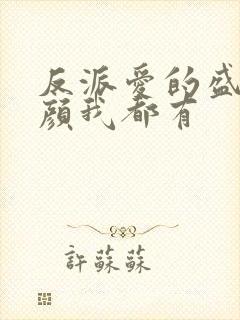 反派愛的盛
顏我都有
許蘇蘇